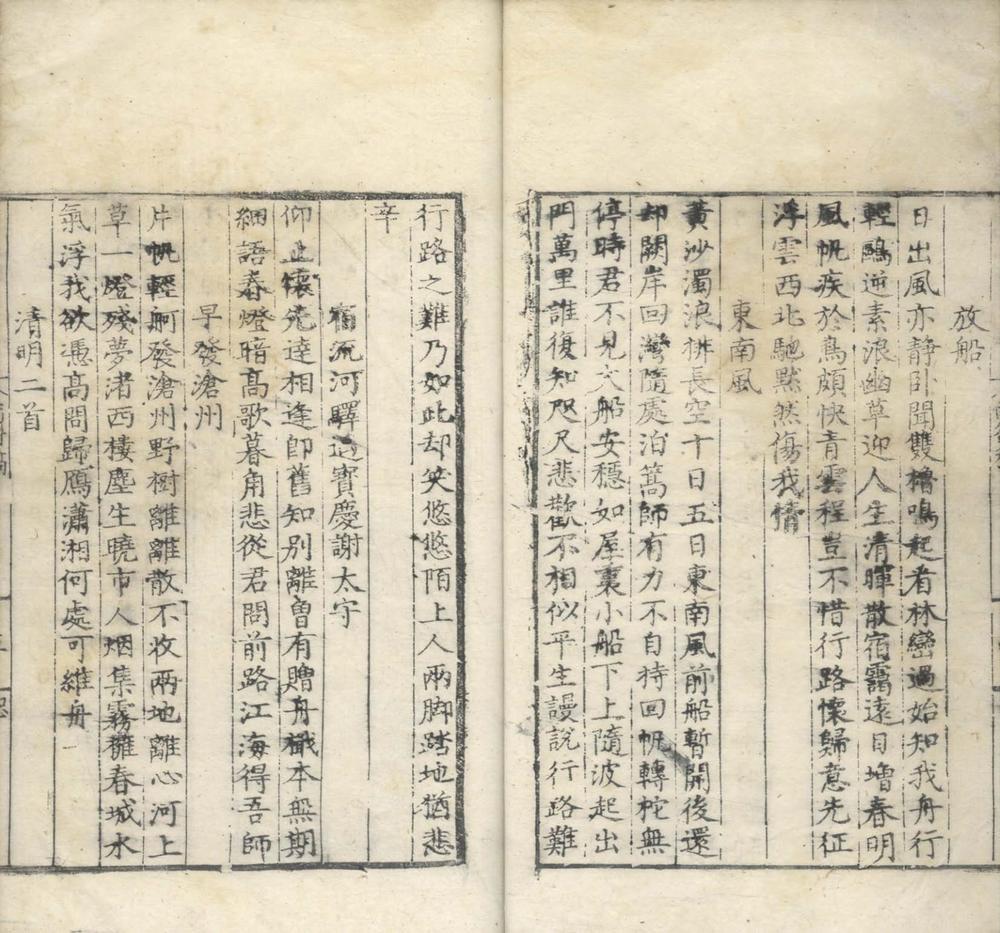 放船
日出風亦静卧聞雙櫓鳴起看林巒過始知我舟行
輕鷗逆素浪幽草迎人生清暉散宿靄遠目增春明
風帆疾於鳥頗快青雲程豈不惜行路懷歸意先征
浮雲西北馳黙然傷我情
東南風
黃沙濁浪掀長空十日五日東南風前船暫開後還
却闕岸回灣隨處泊篙師有力不自持回帆轉柁無
停時君不見大船安穩如屋裏小船下上隨波起出
門萬里誰復知咫尺悲歡不相似平生謾說行路難
行路之難乃如此却笑悠悠陌上人兩脚踏地猶悲
辛
宿流河驛迓寶慶謝太守
仰止懷先達相逢即舊知别離曾有贈舟檝本無期
細語春燈暗高歌暮角悲從君問前路江海得吾師
早發滄州
片帆輕舸發滄州野樹離離散不收兩地離心河上
草一燈殘夢渚西樓塵生曉市人烟集霧擁春城水
氣浮我欲憑高問歸鴈瀟湘何處可維舟
清明二首